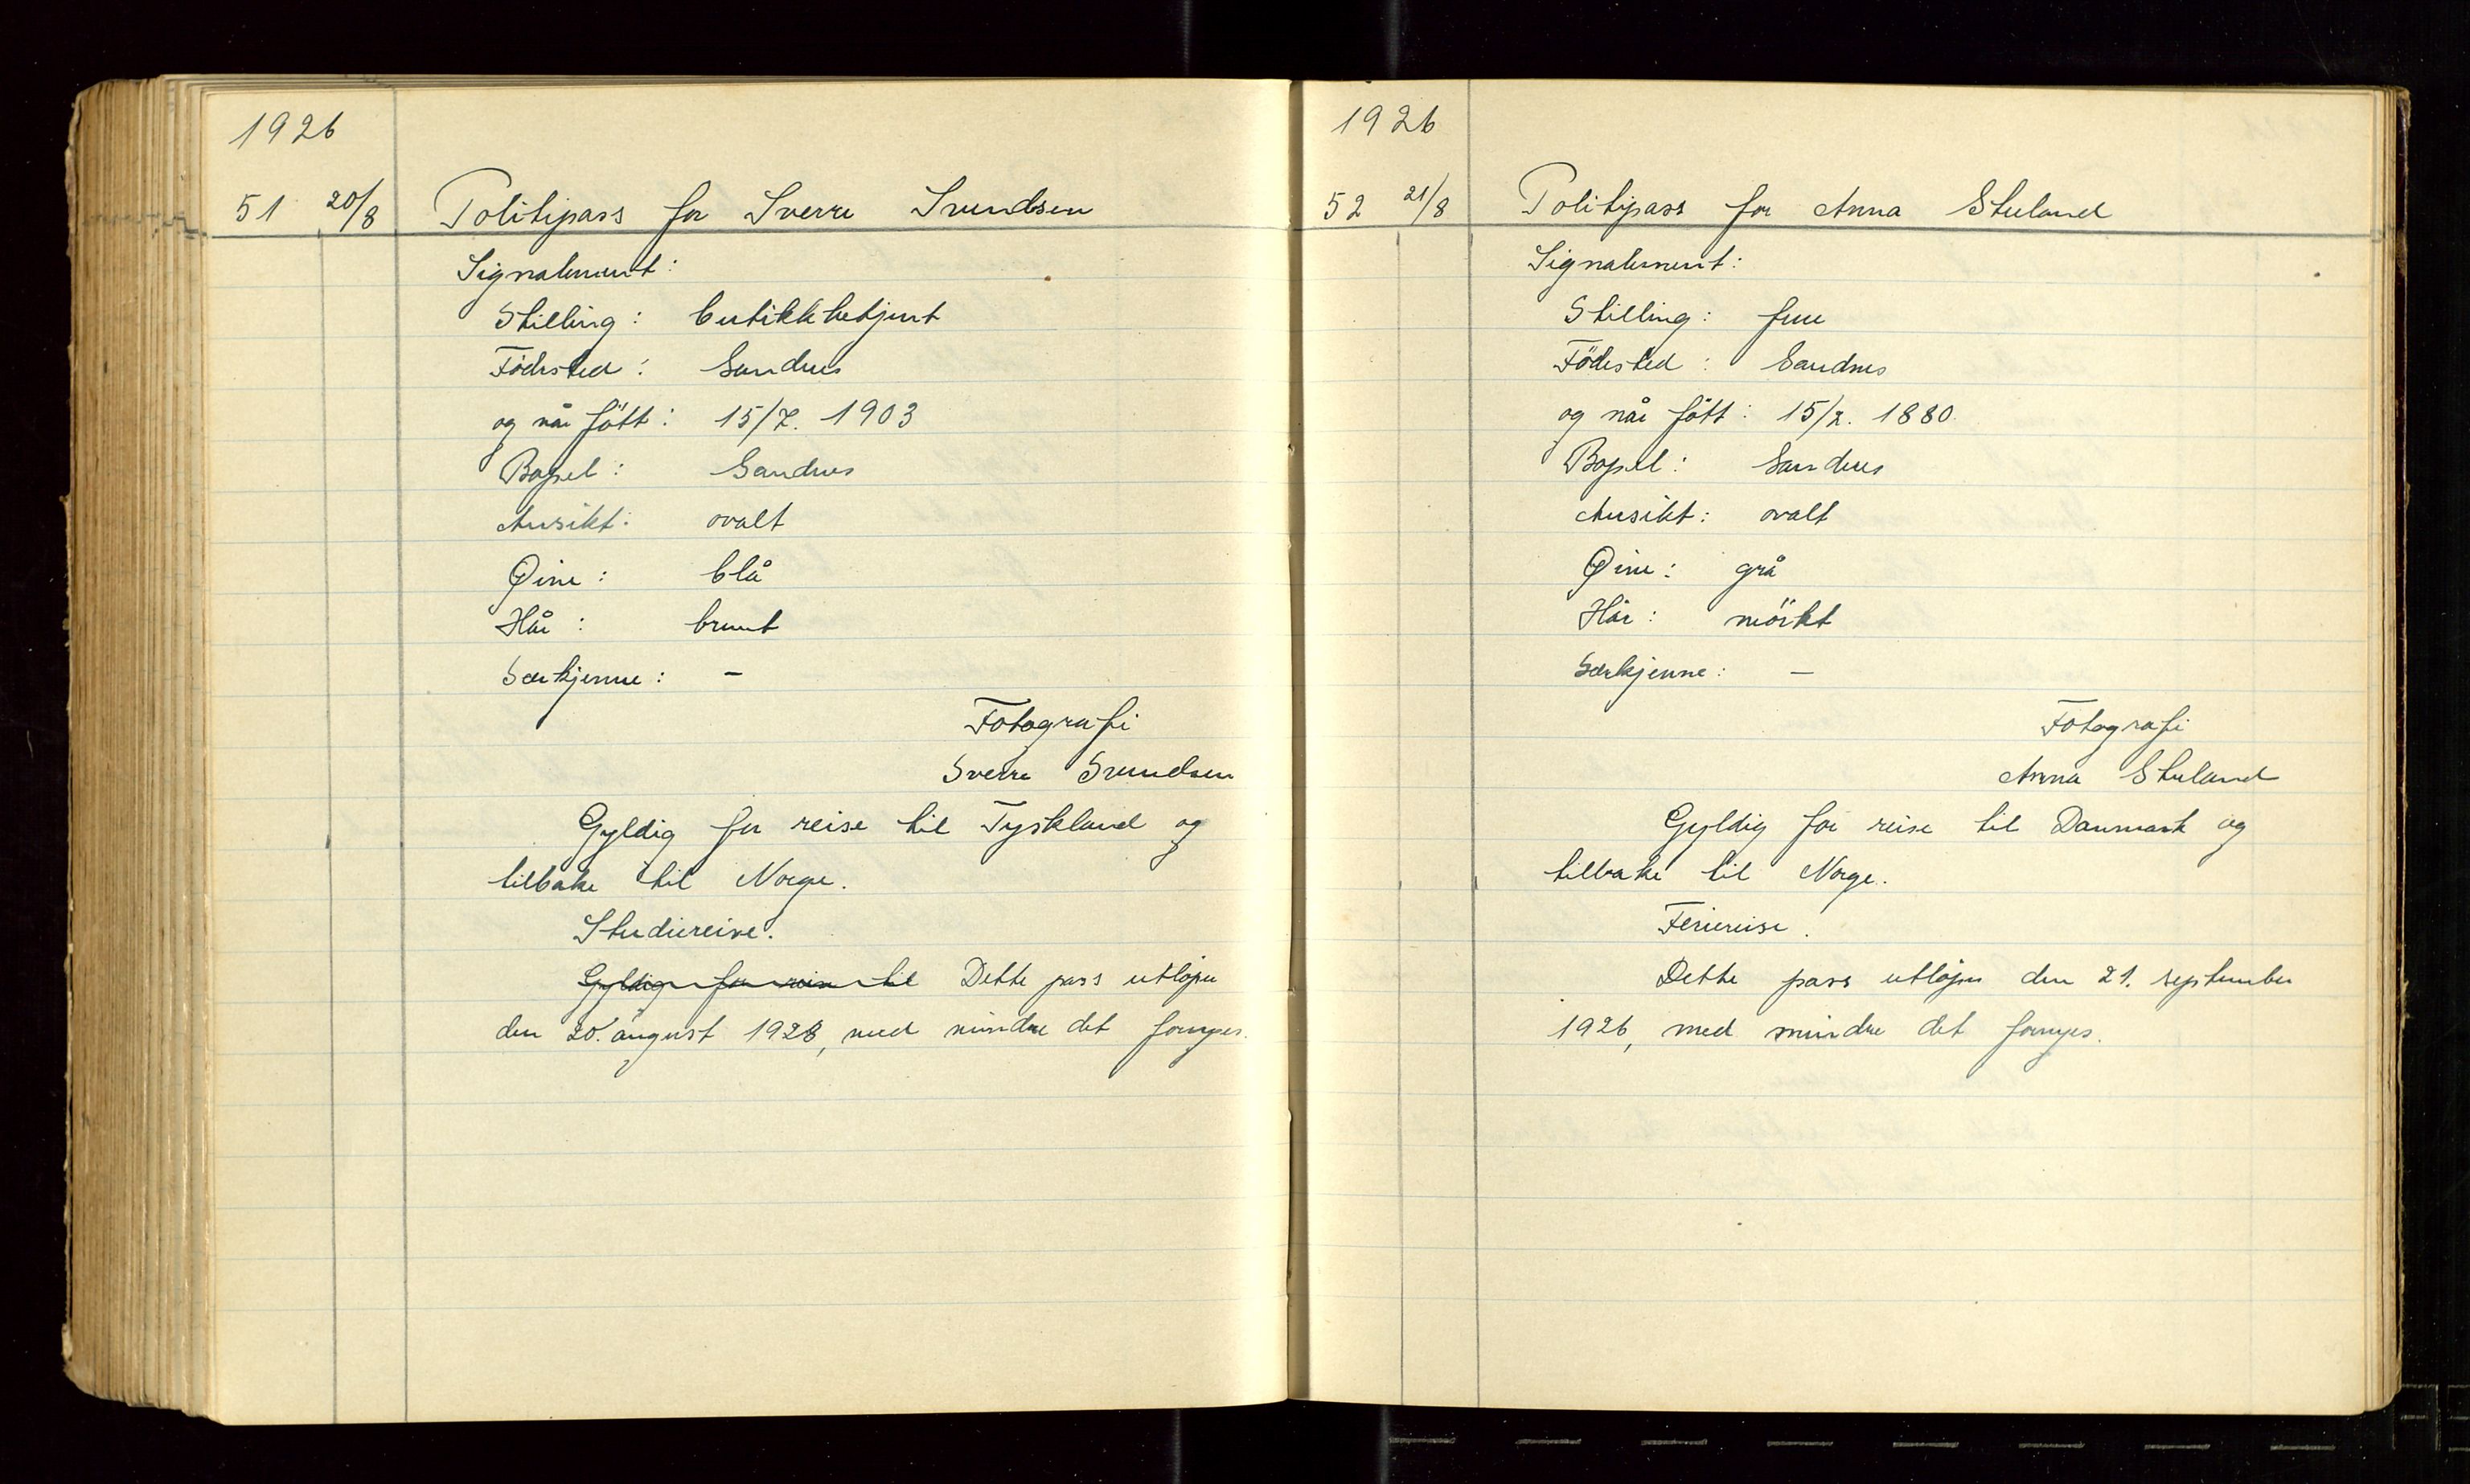 1926
51 20/8 Politipass for Sverre Svendsen
Signalement:
Stilling: butikkbetjent
Födested: Sandnes
og når fött: 15/7. 1903
Bopel: Sandnes
Ansikt: ovalt
Øine: blå
Hår: brunt
Særkjenne: -
Fotografi
Sverre Svendsen
Gyldig for reise til Tyskland og
tilbake til Norge.
Studiereise.
Gyldig for reise til Dette pass utlöper
den 20. august 1928, med mindre det fornyes.
1926
52 21/8 Politipass for Anna Stuland
Signalement:
Stilling: frue
Födested: Sandnes
og når fött: 15/2. 1880
Bopel: Sandnes
Ansikt: ovalt
Øine: grå
Hår: mörkt
Særkjenne: -
Fotografi
Anna Stuland
Gyldig for reise til Danmark og
tilbake til Norge.
Feriereise.
Dette pass utlöper den 21. september
1926, med mindre det fornyes.